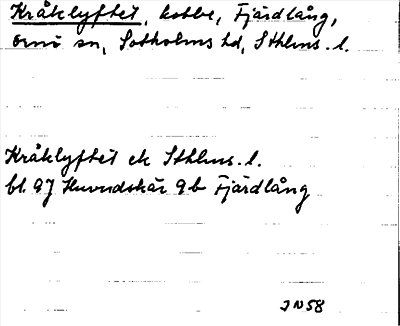 Kråklyftet, kobbe, Fjärdlång,
Ornö sn, Sotholms hd, Sthlms. l.
Kråklyftet ek Sthlms. l.
bl. 97 Huvudskär 9b Fjärdlång
JN58